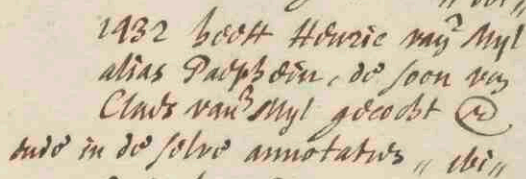 1432 heeft Henric vander Myl
alias Paepkein, de soon van
Claes vander Myl gecocht
ende in de selve annotaties „ ibi „